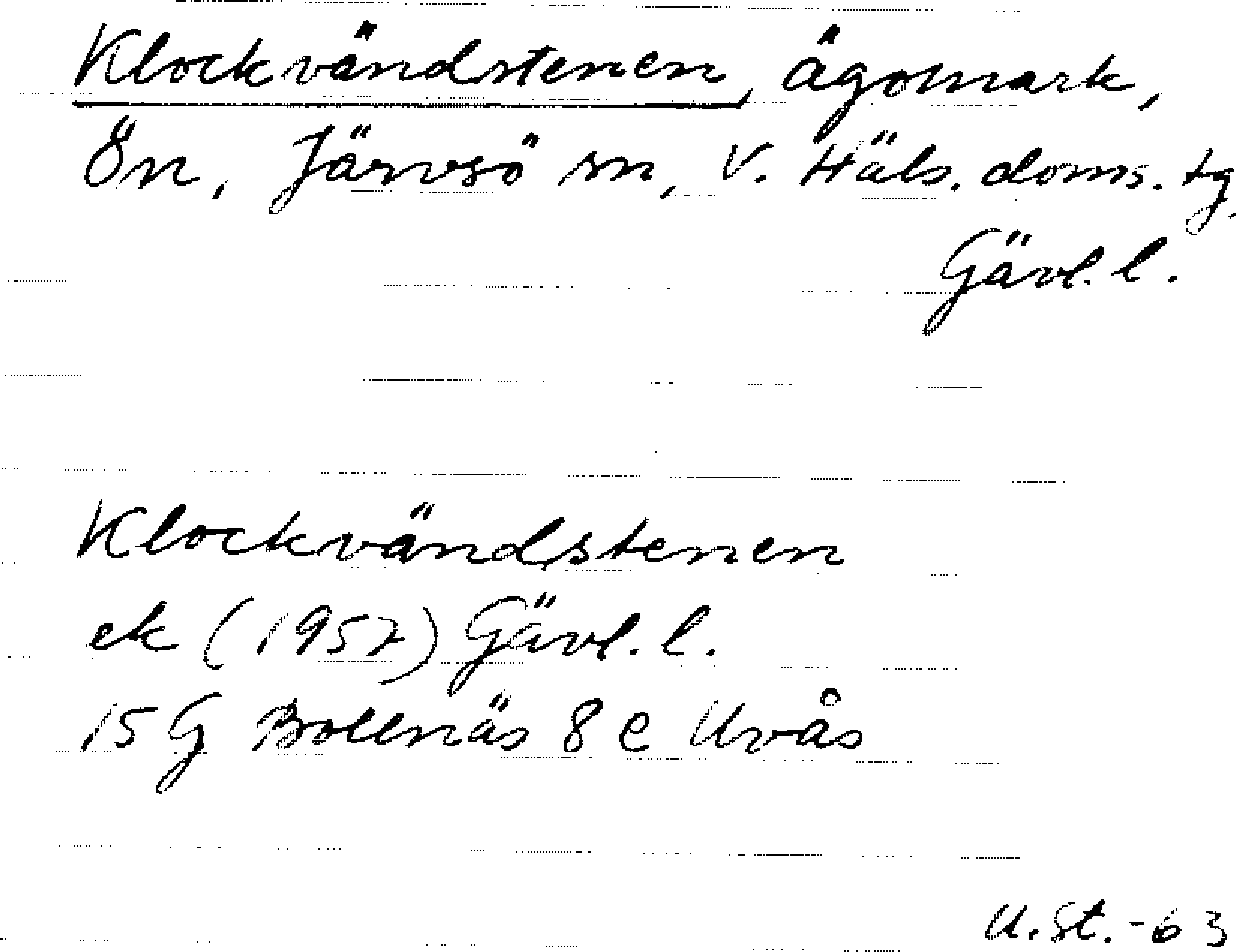 Klockvändstenen, ägomark,
Ön, Järvsö sn, V. Häls. doms. tg,
Gävl. l.
Klockvändstenen
ek (1957) Gävl. l.
15 G Bollnäs 8 e Uvås
U. St. -63